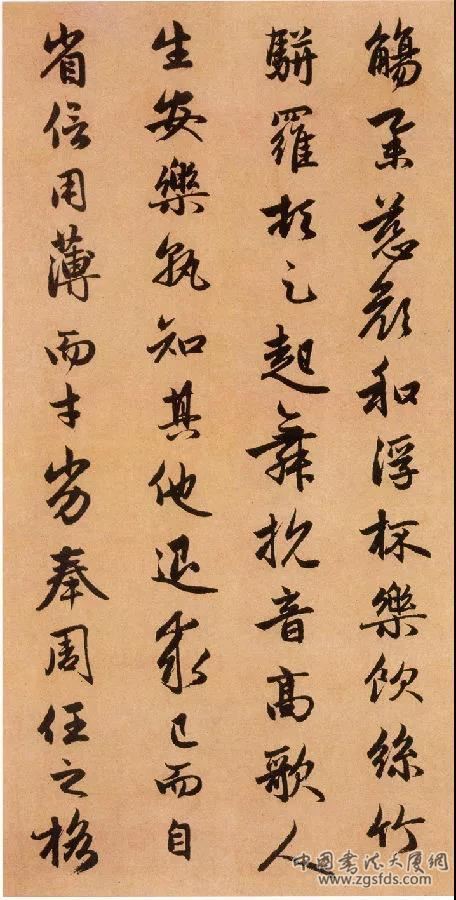 觴舉慈顏和浮杯樂飲絲竹
駢羅頓足起舞抗音高歌人
生安樂孰知其他退求己而自
省信用薄而才劣奉周任之格
中國書法大廈網
www.zgsfds.com